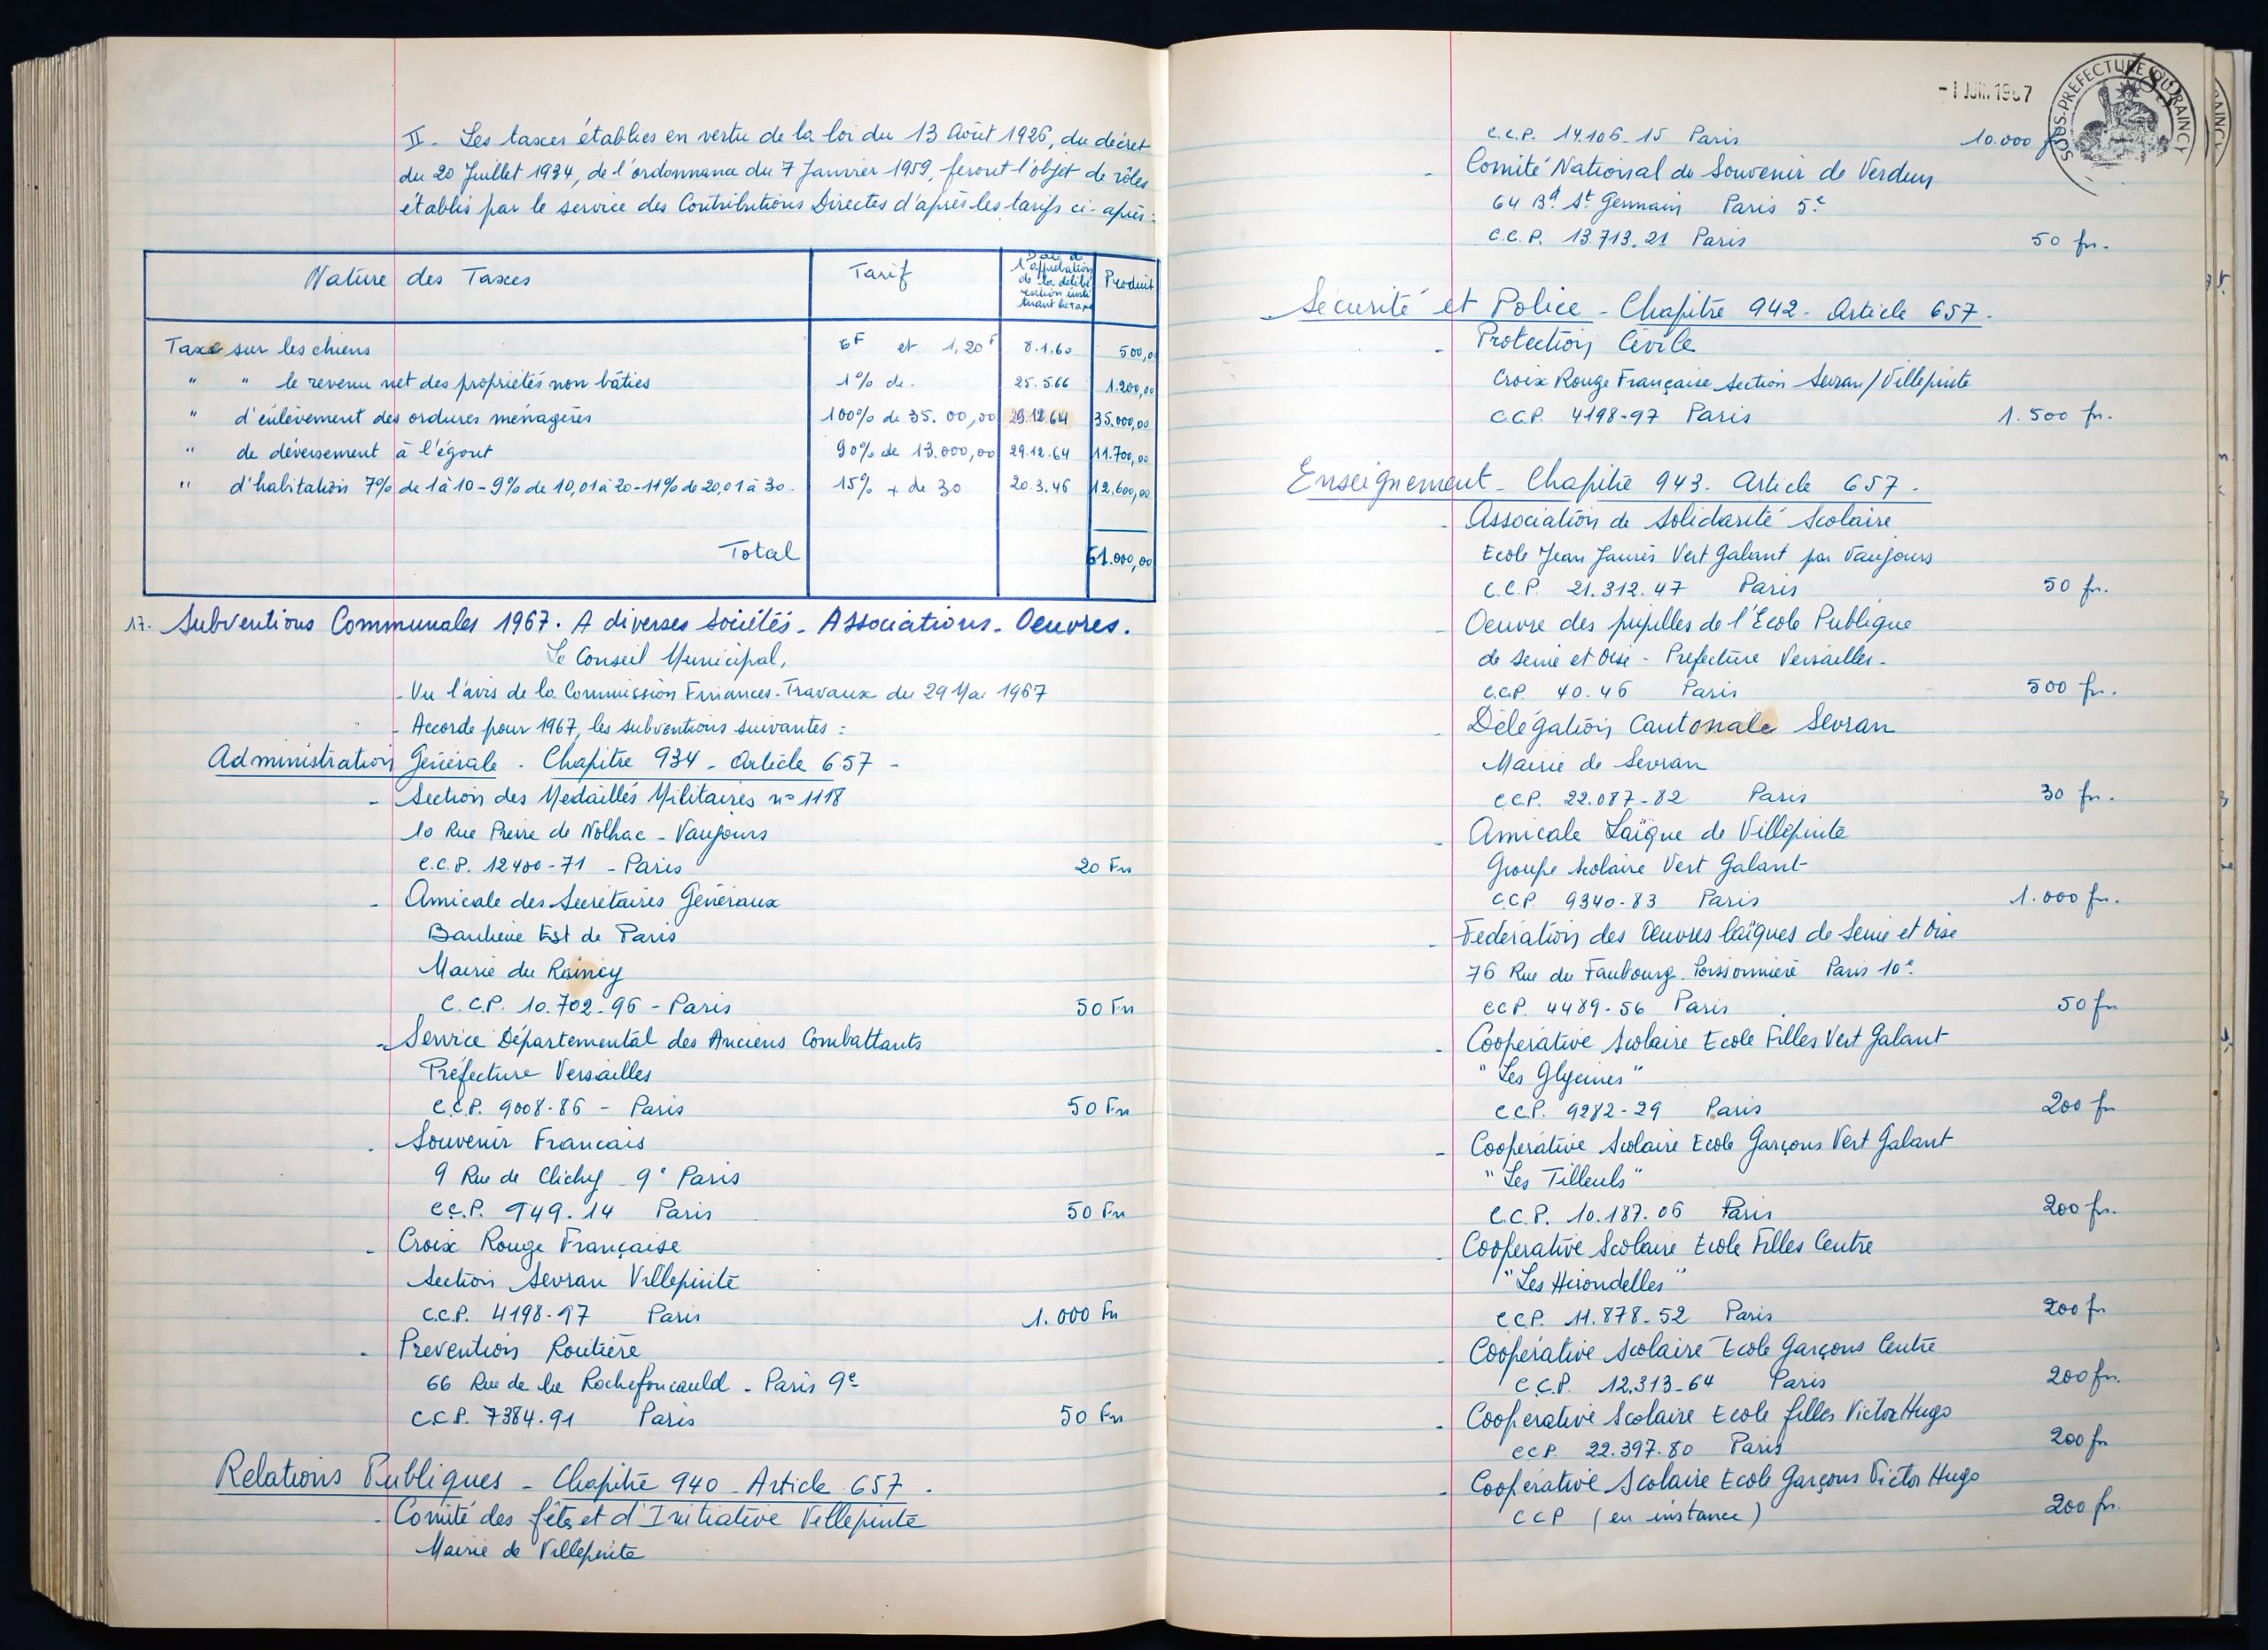 II. Les taxes établies en vertu de la loi du 13 Août 1926, du décret
du 20 Juillet 1934, de l'ordonnance du 7 Janvier 1959, feront l'objet de rôles
établis par le service des Contributions Directes d'après les tarifs ci-après :
Nature des Taxes Tarif Date de l'approbation de la délibération instituant la taxe Produit
Taxe sur les chiens 6F et 1,20F 8.1.60 500,0
" " le revenu net des propriétés non bâties 1% de. 25.5.66 1.200,00
" d'enlèvement des ordures ménagères 100% de 35.00,00 29.12.64 35.000,00
" de déversement à l'égout 90% de 13.000,00 29.12.64 11.700,00
" d'habitation 7% de 1 à 10 - 9% de 10,01 à 20 - 11% de 20,01 à 30 - 15% + de 30 20.3.46 12.600,00
Total 61.000,00
17. Subventions Communales 1967. A diverses Sociétés - Associations - Oeuvres.
Le Conseil Municipal,
- Vu l'avis de la Commission Finances-Travaux du 29 Mai 1967
- Accorde pour 1967, les subventions suivantes :
Administration Générale - Chapitre 934 - Article 657 -
- Section des Médaillés Militaires n° 1118
10 Rue Pierre de Nolhac - Vaujours
C.C.P. 12400-71 - Paris 20 Frs
- Amicale des Secrétaires Généraux
Banlieue Est de Paris
Mairie du Raincy
C.C.P. 10.702.96 - Paris 50 Frs
- Service Départemental des Anciens Combattants
Préfecture Versailles
C.C.P. 9008-86 - Paris 50 Frs
- Souvenir Francais
9 Rue de Clichy - 9e Paris
C.C.P. 949.14 Paris 50 Frs
- Croix Rouge Française
Section Sevran Villepinte
C.C.P. 4198-97 Paris 1.000 Frs
- Prévention Routière
66 Rue de la Rochefoucauld - Paris 9e
C.C.P. 7384.91 Paris 50 Frs
Relations Publiques - Chapitre 940 - Article 657.
- Comité des fêtes et d'Initiative Villepinte
Mairie de Villepinte
-1 JUIN 1967
SOUS-PREFECTURE DU RAINCY
C.C.P. 14.106-15 Paris 10.000 frs
- Comité National du Souvenir de Verdun
64 Bd St Germain Paris 5e
C.C.P. 13.713.21 Paris 50 frs.
Sécurité et Police - Chapitre 942 - Article 657.
- Protection Civile
Croix Rouge Française Section Sevran/Villepinte
C.C.P. 4198-97 Paris 1.500 frs.
Enseignement - Chapitre 943. Article 657.
- Association de Solidarité Scolaire
Ecole Jean Jaurès Vert Galant par Vaujours
C.C.P. 21.312.47 Paris 50 frs.
- Oeuvre des pupilles de l'Ecole Publique
de Seine et Oise - Préfecture Versailles -
C.C.P. 40.46 Paris 500 frs.
- Délégation Cantonale Sevran
Mairie de Sevran
C.C.P. 22.087-82 Paris 30 frs.
- Amicale Laïque de Villepinte
Groupe Scolaire Vert Galant
C.C.P. 9340-83 Paris 1.000 frs.
- Fédération des Oeuvres laïques de Seine et Oise
76 Rue du Faubourg Poissonnière Paris 10e.
CCP. 4489-56 Paris 50 frs
- Coopérative Scolaire Ecole Filles Vert Galant
"Les Glycines"
C.C.P. 9282-29 Paris 200 frs
- Coopérative Scolaire Ecole Garçons Vert Galant
"Les Tilleuls"
C.C.P. 10.187.06 Paris 200 frs.
- Coopérative Scolaire Ecole Filles Centre
"Les Hirondelles"
C.C.P. 11.878-52 Paris 200 frs
- Coopérative Scolaire Ecole Garçons Centre
C.C.P. 12.313-64 Paris 200 frs.
- Coopérative Scolaire Ecole filles Victor Hugo
CCP. 22.397.80 Paris 200 frs
- Coopérative Scolaire Ecole Garçons Victor Hugo
CCP (en instance) 200 frs.